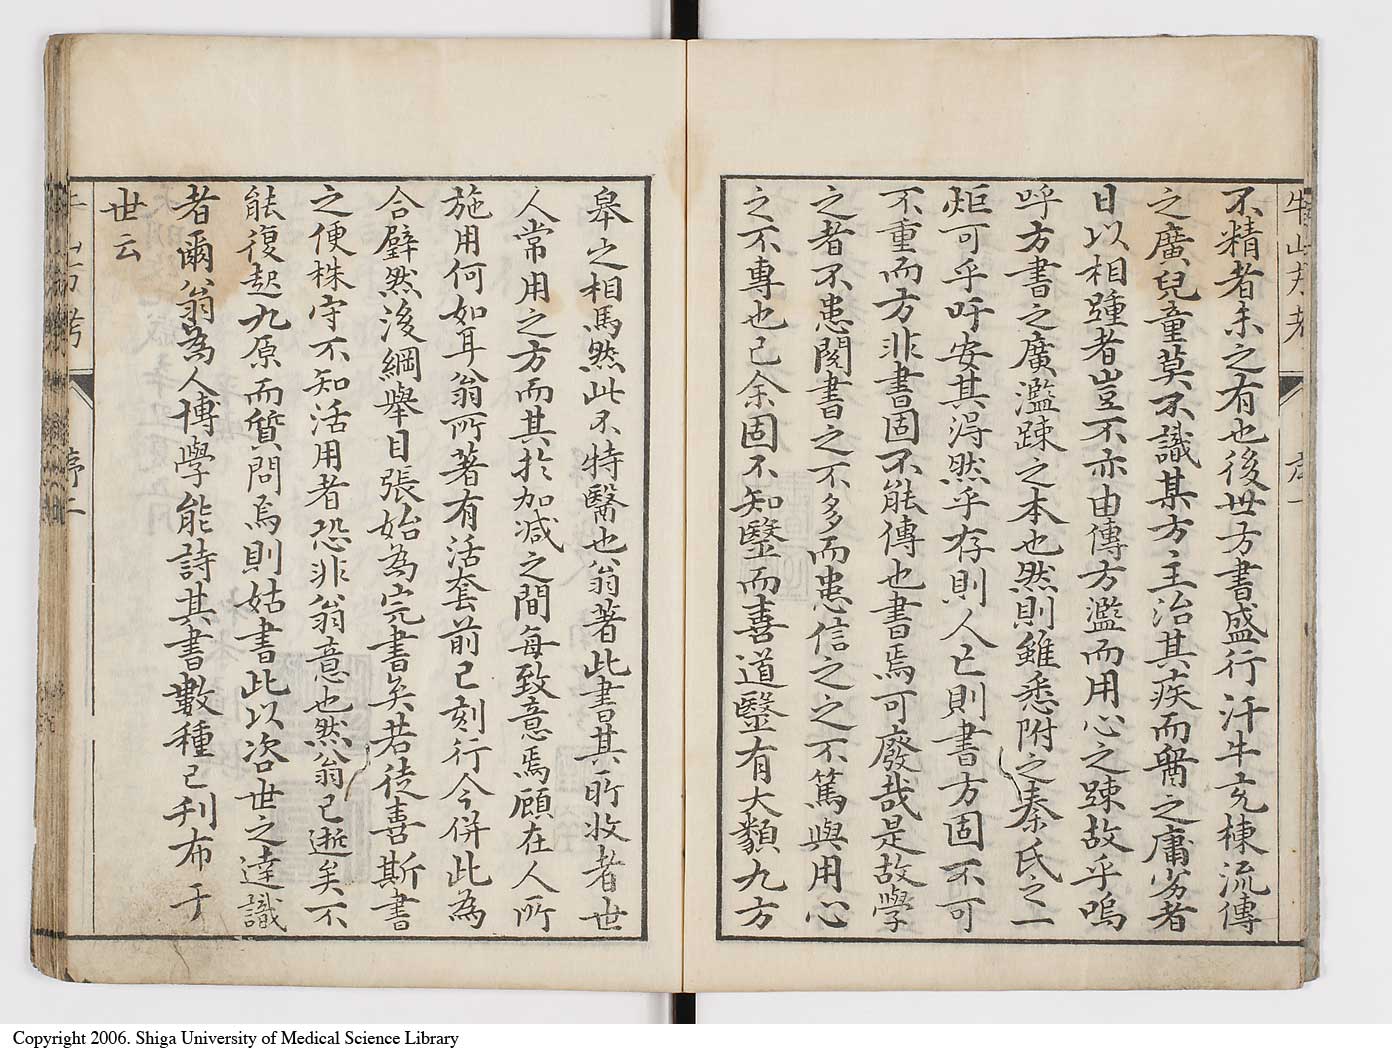 牛山方考
序一
不精者未之有也後世方書盛行汗牛充棟流傳
之廣兒童莫不識某方主治其疾而醫之庸劣者
日以相踵者豈不亦由傳方濫而用心之踈故乎嗚
呼方書之廣濫踈之本也然則雖悉附之秦氏之一
炬可乎吁安其淂然乎存則人亡則書方固不可
不重而方非書固不能傳也書焉可廢哉是故學
之者不患閱書之不多而患信之之不篤與用心
之不專也已余固不知醫而喜道醫有大類九方
皋之相馬然此不特醫也翁著此書其所收者世
人常用之方而其於加减之間每致意焉顧在人所
施用何如耳翁所著有活套前已刻行今併此為
合璧然後綱舉目張始為完書矣若徒善斯書
之便株守不知活用者恐非翁意也然翁已逝矣不
能復起九原而質問焉則姑書此以咨世之達識
者爾翁為人博學能詩其書數種已刊布于
世云
牛山方考
序二
Copyright 2006. Shiga University of Medical Science Library